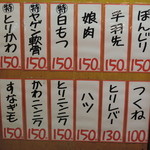 ぼんじり 150
手羽先 150
娘肉 150
特白もつ 150
特ヤゲン軟骨 150
特とりかわ 150
つくね 100
とりレバー 130
ハツ 150
とりニンニク 150
かわニンニク 150
すなぎモ 150